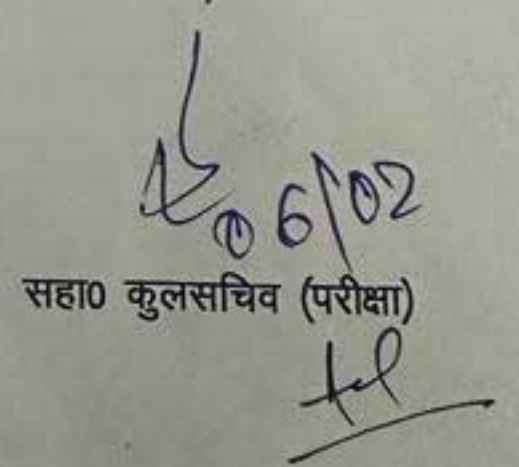 06/02
सहा0 कुलसचिव (परीक्षा)